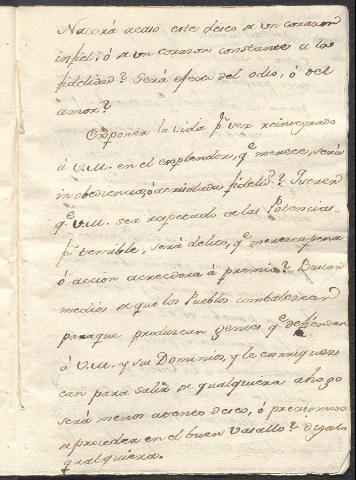 Nacerá acaso este deseo de un corazon
infiel, ó de un corazon constante a la
fidelidad? Será efecto del odio, ó del
amor?
Exponer la vida pr ver reintegrado
á V.M. en el esplendor, qe merece, será
inobediencia, ó acrisolada fidelidd? Querer
qe V.M. sea respetado de las Potencias
pr temible, será delito, qe merezca pena
ó accion acreedora á premio? Buscar
medios de que los Pueblos combalezcan
para que produzcan gentes qe defiendan
á V.M. y sus Dominios, y le enriquez-
can para salir de qualquiera ahogo
será menos atento deseo, ó preciso modo
de proceder en el buen Vasallo? digalo
qualquiera.